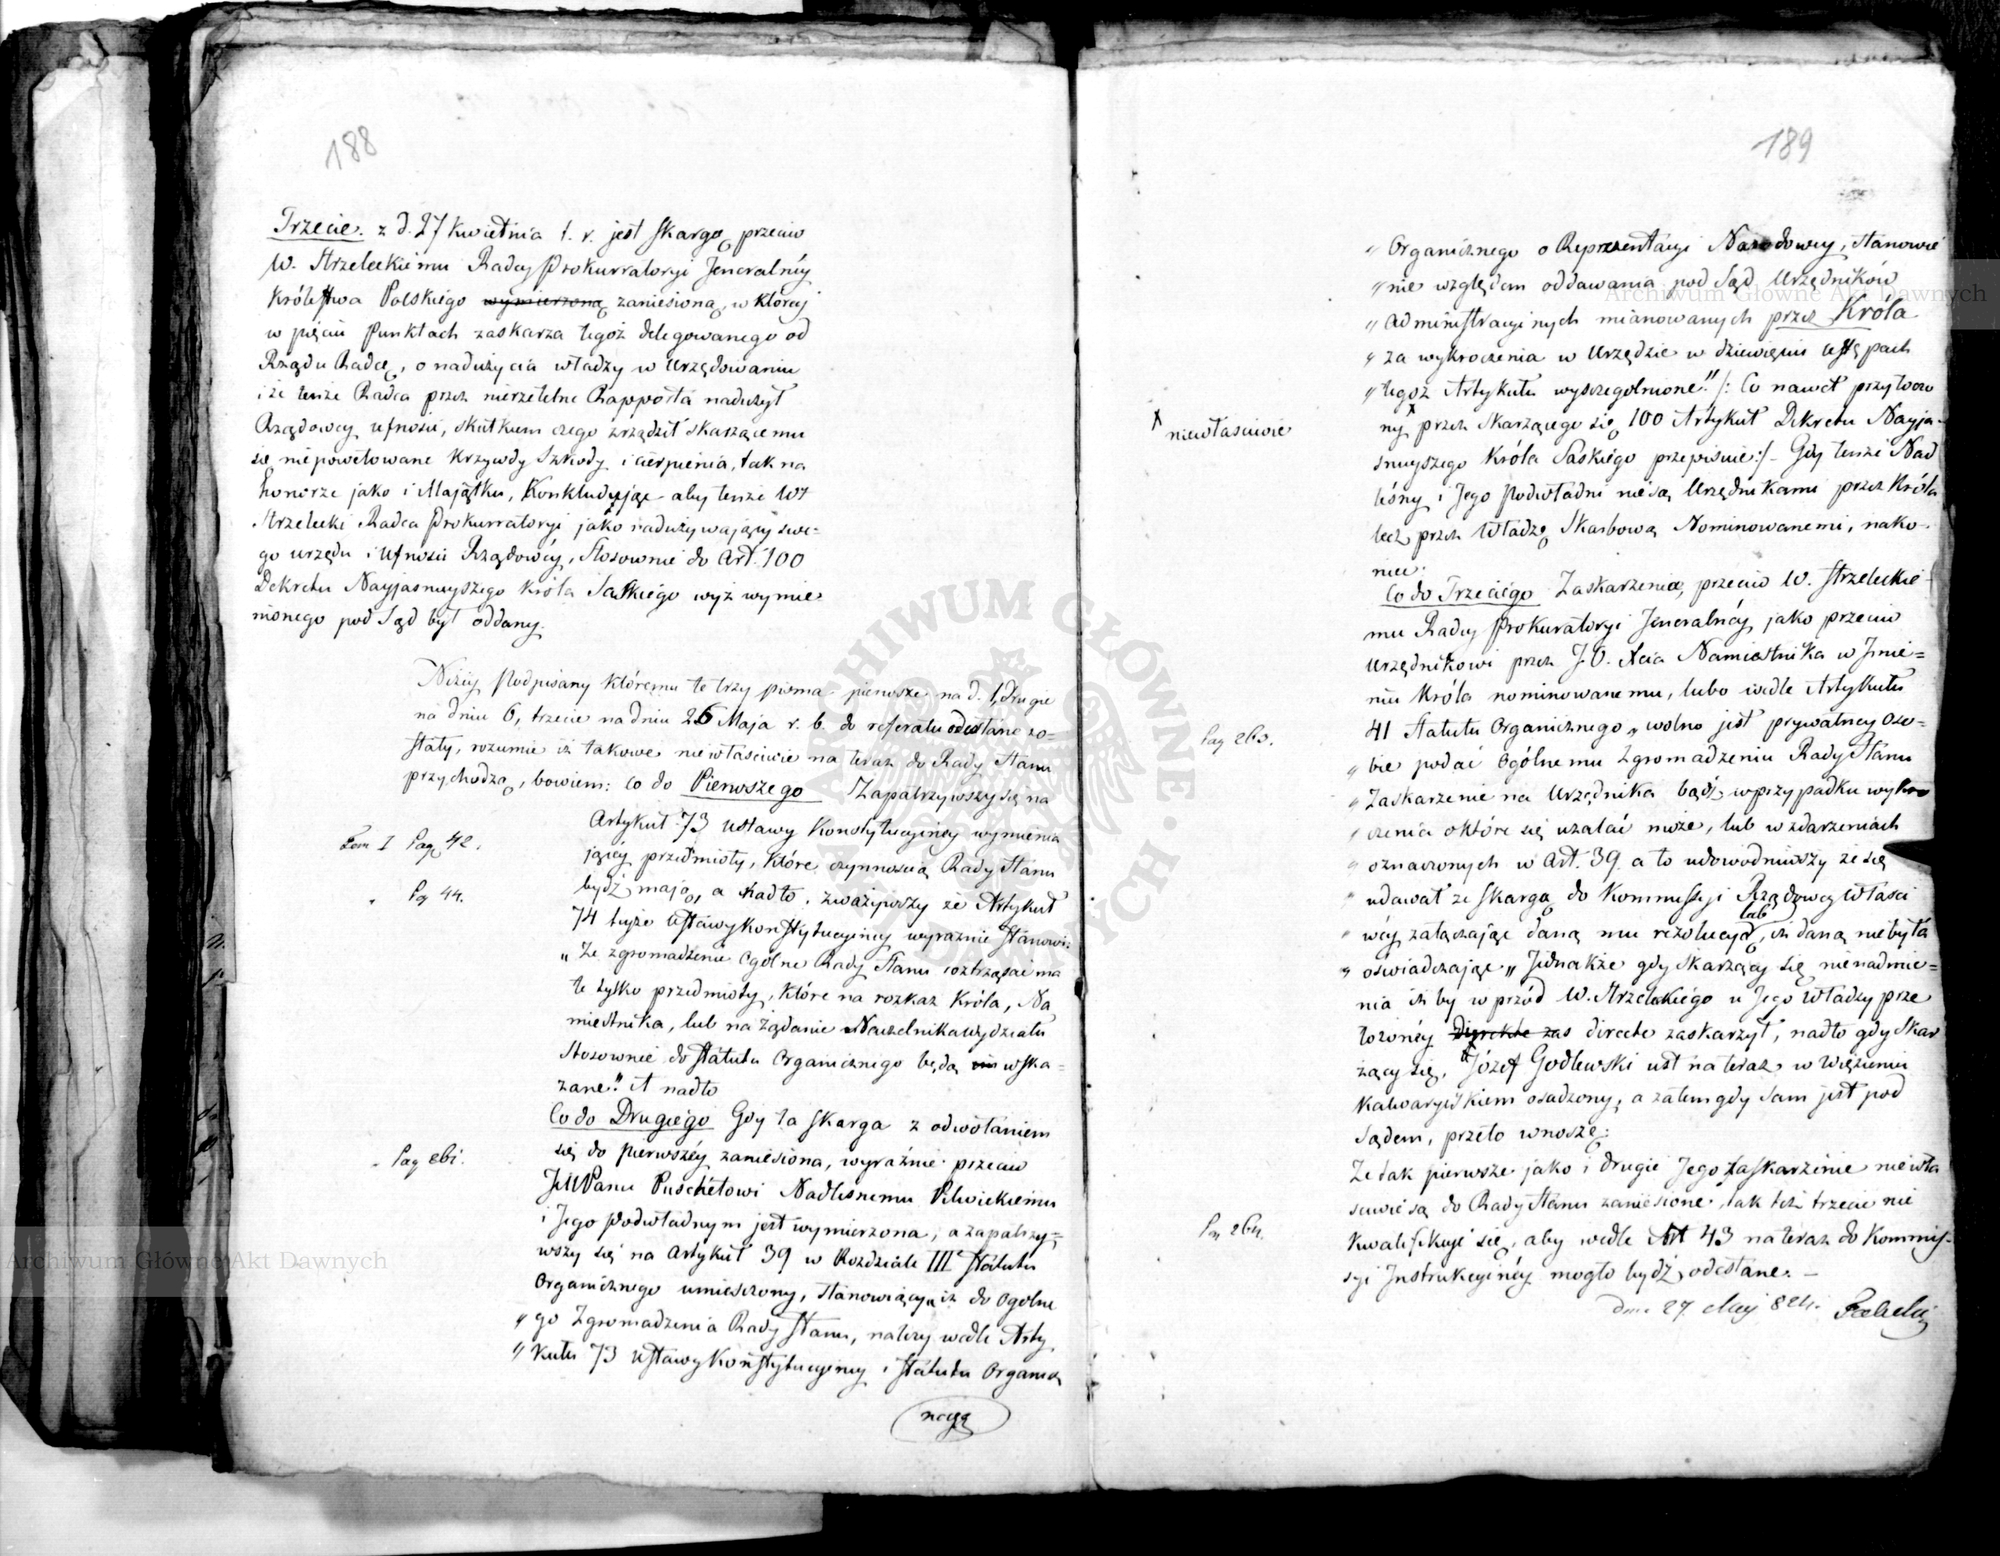 188
Trzecie. z d. 27 Kwietnia t. r. jest skargą przeciw
W. Strzeleckiemu Radcy Prokurratoryi Jeneralnéy
Królestwa Polskiégo wymierzoną zaniesioną, w któréy
w pięciu punktach zaskarza tegoż delegowanego od
Rządu Radcę, o nadużycia władzy w Urzędowaniu
i że tenże Radca przez nierzetelne Rapporta nadużył
Rządowéy ufności, skutkiem czego zrządził skarzącemu
się niepowetowane Krzywdy Szkody i cierpienia, tak na
honorze jako i Majątku, Konkludując aby tenże WJ
Strzelecki Radca Prokurratoryi jako nadużywający swe-
go urzędu i ufności Rządowéy, stosownie do Art. 100
Dekretu Nayjasnieyszego Króla Saskiégo wyż wymie
nionego pod Sąd był oddany.
Niżéy Podpisany któremu te trzy pisma pierwsze na d. 1, drugie
na dniu 6, trzecie na dniu 26 Maja r. b. do referatu odesłane zo-
stały, rozumie iż takowe niewłaściwie na teraz do Rady Stanu
przychodzą, bowiem: Co do Pierwszego Zapatrzywszy się na
Artykuł 73 Ustawy Konstytucyinéy wymienia
Tom I Pag 42.
jącéy przedmioty, które czynnością Rady Stanu
bydź mają, a nadto, zważywszy że Artykuł
„ Pag 44.
74 teyże Ustawy Konstytucyinéy wyraźnie stanowi:
„ Że zgromadzenie Ogólne Rady Stanu roztrząsać ma
te tylko przedmioty, które na rozkaz Króla, Na
miestnika, lub na żądanie Naczelnika wydziału
Stosownie do Statutu Organicznego będą wska-
zane." A nadto
Co do Drugiégo Gdy ta skarga z odwołaniem
się do pierwszéy zaniesiona, wyraźnie przeciw
„ Pag 261.
JWPanu Puschétowi Nadleśnemu Pilwickiému
i Jégo Podwładnym jest wymierzona, a zapatrzy-
wszy się na Artykuł 39 w Rozdziale III Statutu
Organicznego umieszczony, stanowiący „ iż do Ogólne
„ go Zgromadzenia Rady Stanu, należy wedle Arty
„ kułu 73 Ustawy Konstytucyinéy i Statutu Organicz
189
„ Organicznego o Reprezentacyi Narodowéy, stanowie
„ nie względem oddawania pod Sąd Urzędników
„ Administracyinych mianowanych przez Króla
„ za wykroczenia w Urzędzie w dziewięciu ustępach
„ tegoż Artykułu wyszczególnione." /: Co nawet przytoczo
X niewłaściwie
ny X przez skarzącego się 100 Artykuł Dekretu Nayja-
snieyszego Króla Saskiégo przepisuie :/ Gdy tenże Nad
leśny i Jego Podwładni nie są Urzędnikami przez Króla
lecz przez Władzę Skarbową Nominowanemi, nako-
niec.
Co do Trzeciégo Zaskarzenia, przeciw W. Strzeleckie-
mu Radcy Prokuratoryi Jeneralnéy, jako przeciw
Urzędnikowi przez J. O. Xcia Namiestnika w Jmie-
niu Króla nominowanemu, lubo wedle Artykułu
41 Statutu Organicznego „ wolno jest prywatnéy oso-
Pag 263.
„ bie podać Ogólnemu Zgromadzeniu Rady Stanu
„ Zaskarzenie na Urzędnika bądź w przypadku wykro
„ czenia o które się użalać może, lub w zdarzeniach
„ oznaczonych w Art. 39. a to udowodniwszy że się
„ udawał ze skargą do Kommissyi Rządowéy Właści
„ wéy załączając daną mu rezolucyą, lub iż daną niebyła
„ oświadczając „ Jednakże gdy skarzący się nienadmie-
nia iżby wprzód W. Strzeleckiégo u Jego Władzy prze
łożonéy directe zaskarzył, nadto gdy skar
żący się, Józef Godlewski iest na teraz w więzieniu
Kalwaryiskiem osadzony, a zatem gdy sam jest pod
Sądem, przeto wnoszę:
Że tak pierwsze jako i drugie Jego Zaskarzenie niewła
ściwie są do Rady Stanu zaniesione, tak też trzecie nie
Pag 264.
kwalifikuje się, aby wedle Art 43 na teraz do Kommis-
syi Instrukcyinéy mogło bydź odesłane. —
dnia 27 Maji 824.
nicz
Archiwum Główne Akt Dawnych
Archiwum Główne Akt Dawnych
ARCHIWUM GŁÓWNE AKT DAWNYCH